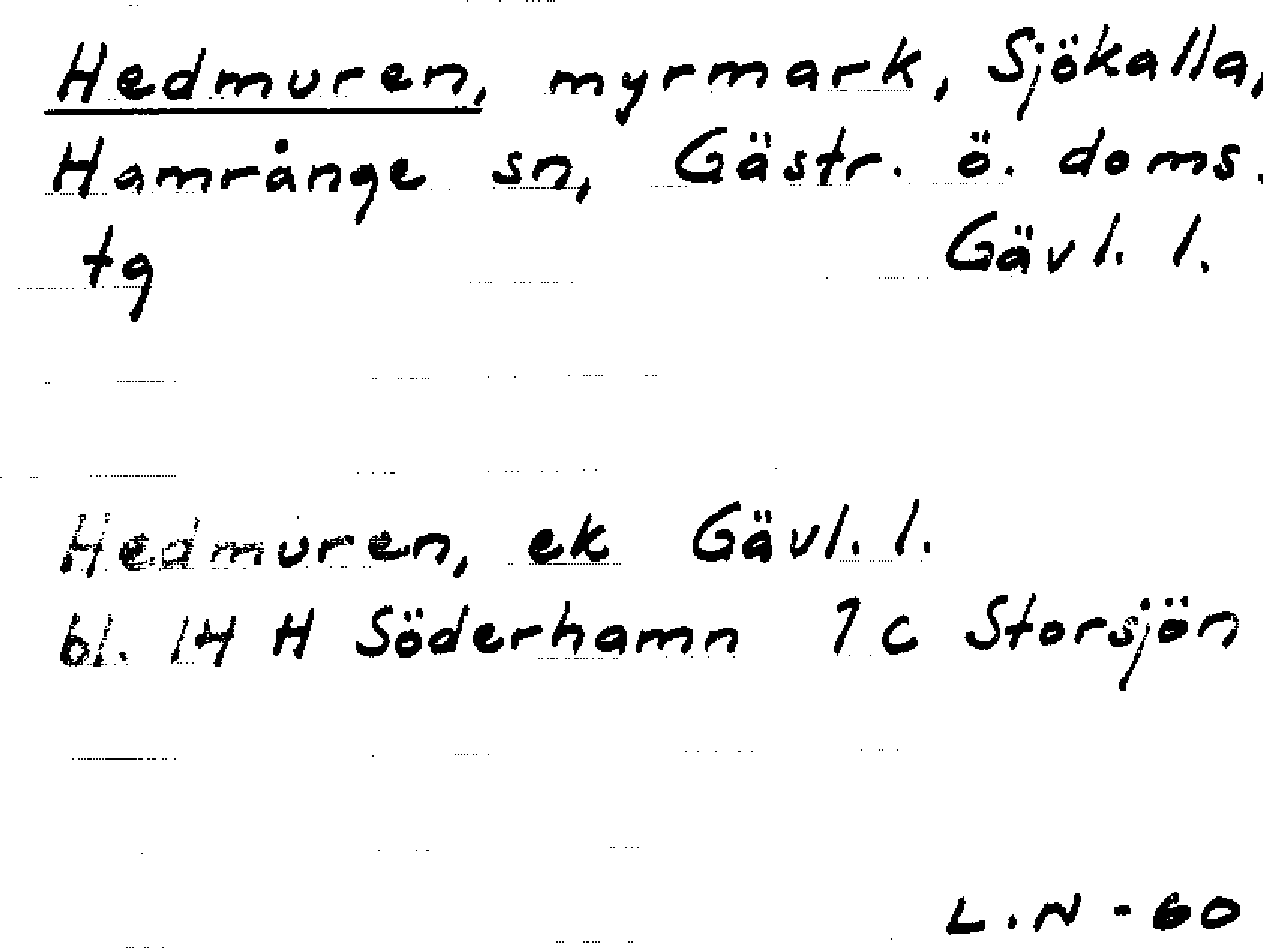 Hedmuren, myrmark, Sjökalla,
Hamrånge sn, Gästr. ö. doms.
tg Gävl. l.
Hedmuren, ek Gävl. l.
bl. 14 H Söderhamn 1 c Storsjön
L.N - 60